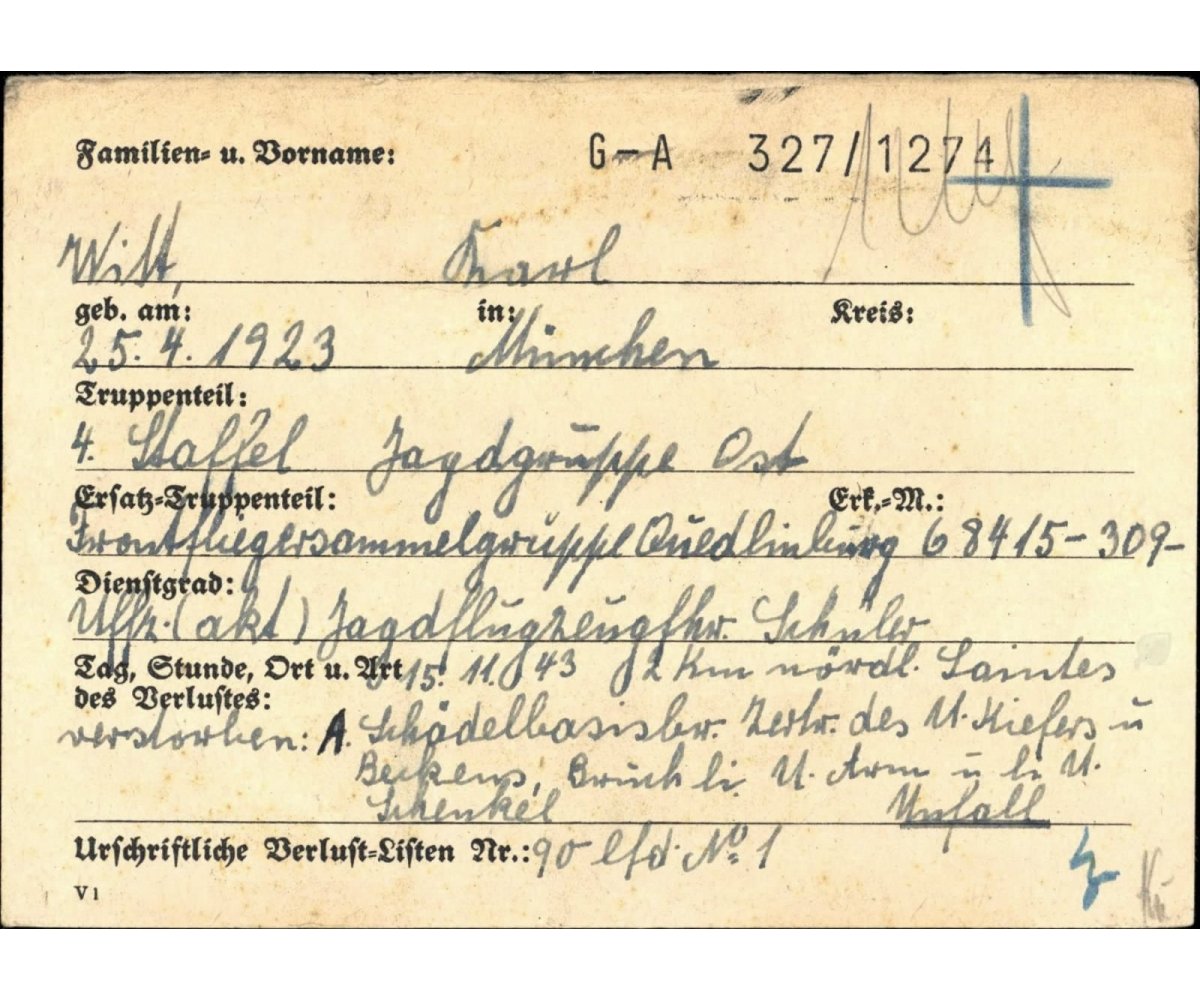 Familien- u. Vorname: G-A 327/1274
Witt, Karl
geb. am: in: Kreis:
25. 4. 1923 München
Truppenteil:
4. Staffel Jagdgruppe Ost
Ersatz-Truppenteil: Erk.-M.:
Frontfliegersammelgruppe Quedlinburg 68415-309-
Dienstgrad:
Uffz. (akt) Jagdflugzeugfhr. Schüler
Tag, Stunde, Ort u. Art 15. 11. 43 2 km nördl. Saintes
des Verlustes:
verstorben: A. Schädelbasisbr. Zertr. des U. Kiefers u
Beckens, Bruch li. U. Arm u li. U.
Schenkel Unfall
Urschriftliche Verlust-Listen Nr.: 90 lfd. No. 1
V 1